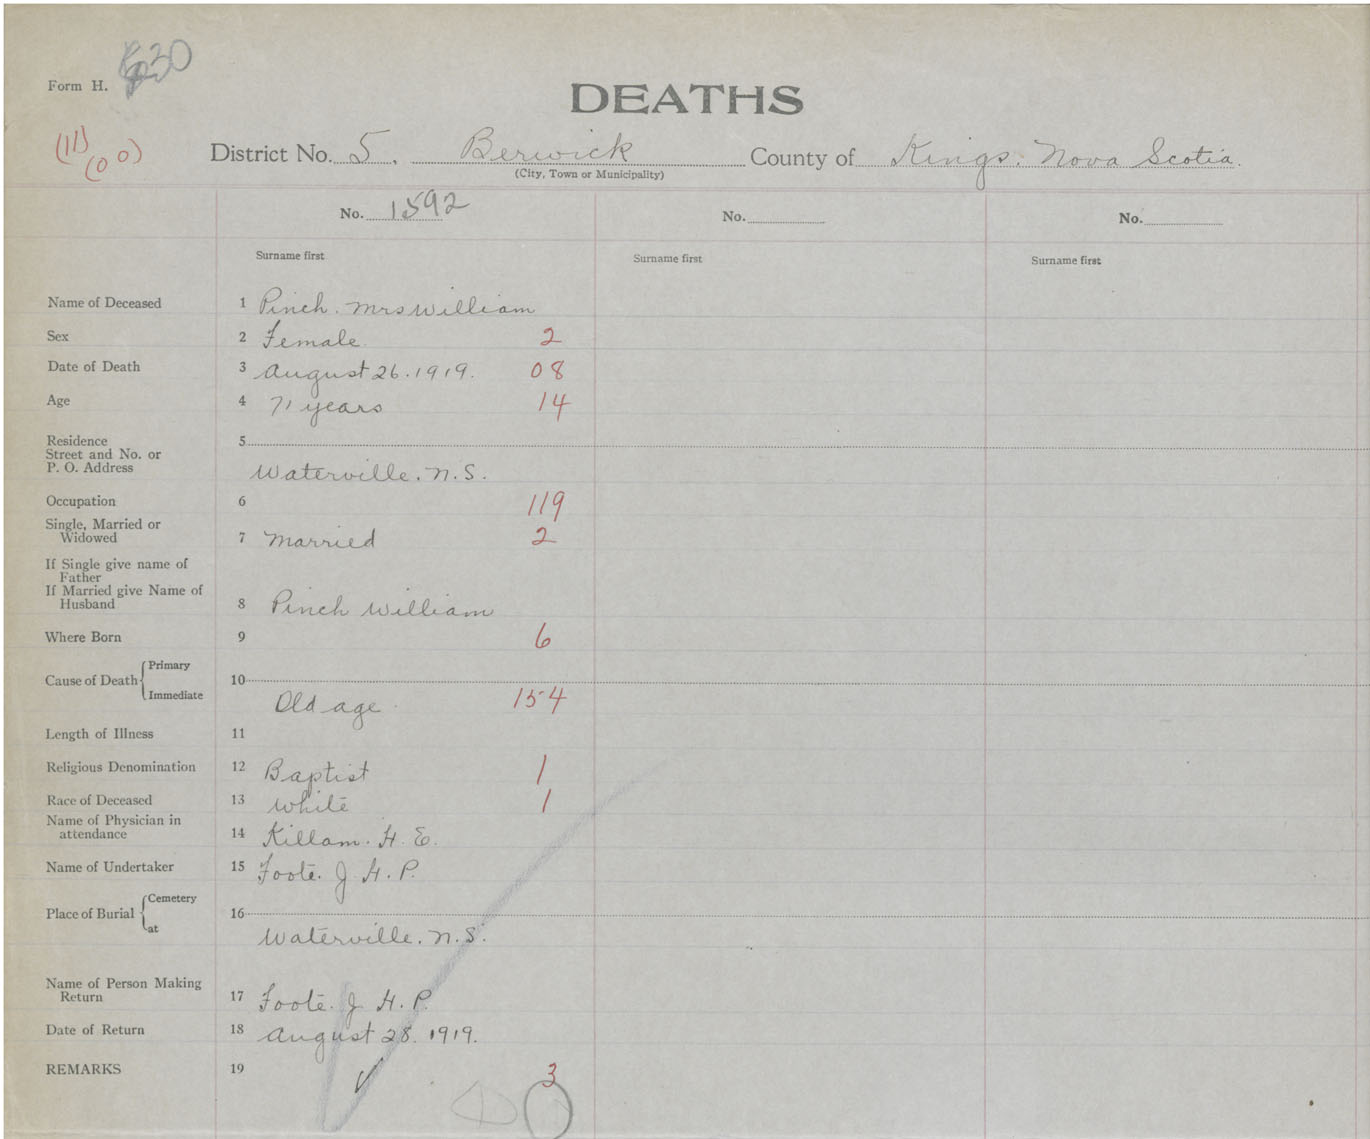 Form H.
30
DEATHS
(11)
(00)
District No. 5. Berwick County of Kings. Nova Scotia.
(City, Town or Municipality)
No. 1592 No. No.
Surname first Surname first Surname first
Name of Deceased 1 Pinch. Mrs William
Sex 2 Female. 2
Date of Death 3 August 26. 1919. 08
Age 4 71 years 14
Residence 5
Street and No. or
P. O. Address Waterville. N.S.
Occupation 6 119
Single, Married or
Widowed 7 Married 2
If Single give name of
Father
If Married give Name of
Husband 8 Pinch William
Where Born 9 6
Primary
Cause of Death 10
Immediate Old age. 154
Length of Illness 11
Religious Denomination 12 Baptist 1
Race of Deceased 13 White 1
Name of Physician in
attendance 14 Killam. H. E.
Name of Undertaker 15 Foote. J H. P.
Cemetery
Place of Burial 16
at Waterville. N.S.
Name of Person Making
Return 17 Foote. J H. P.
Date of Return 18 August 28. 1919.
REMARKS 19 3